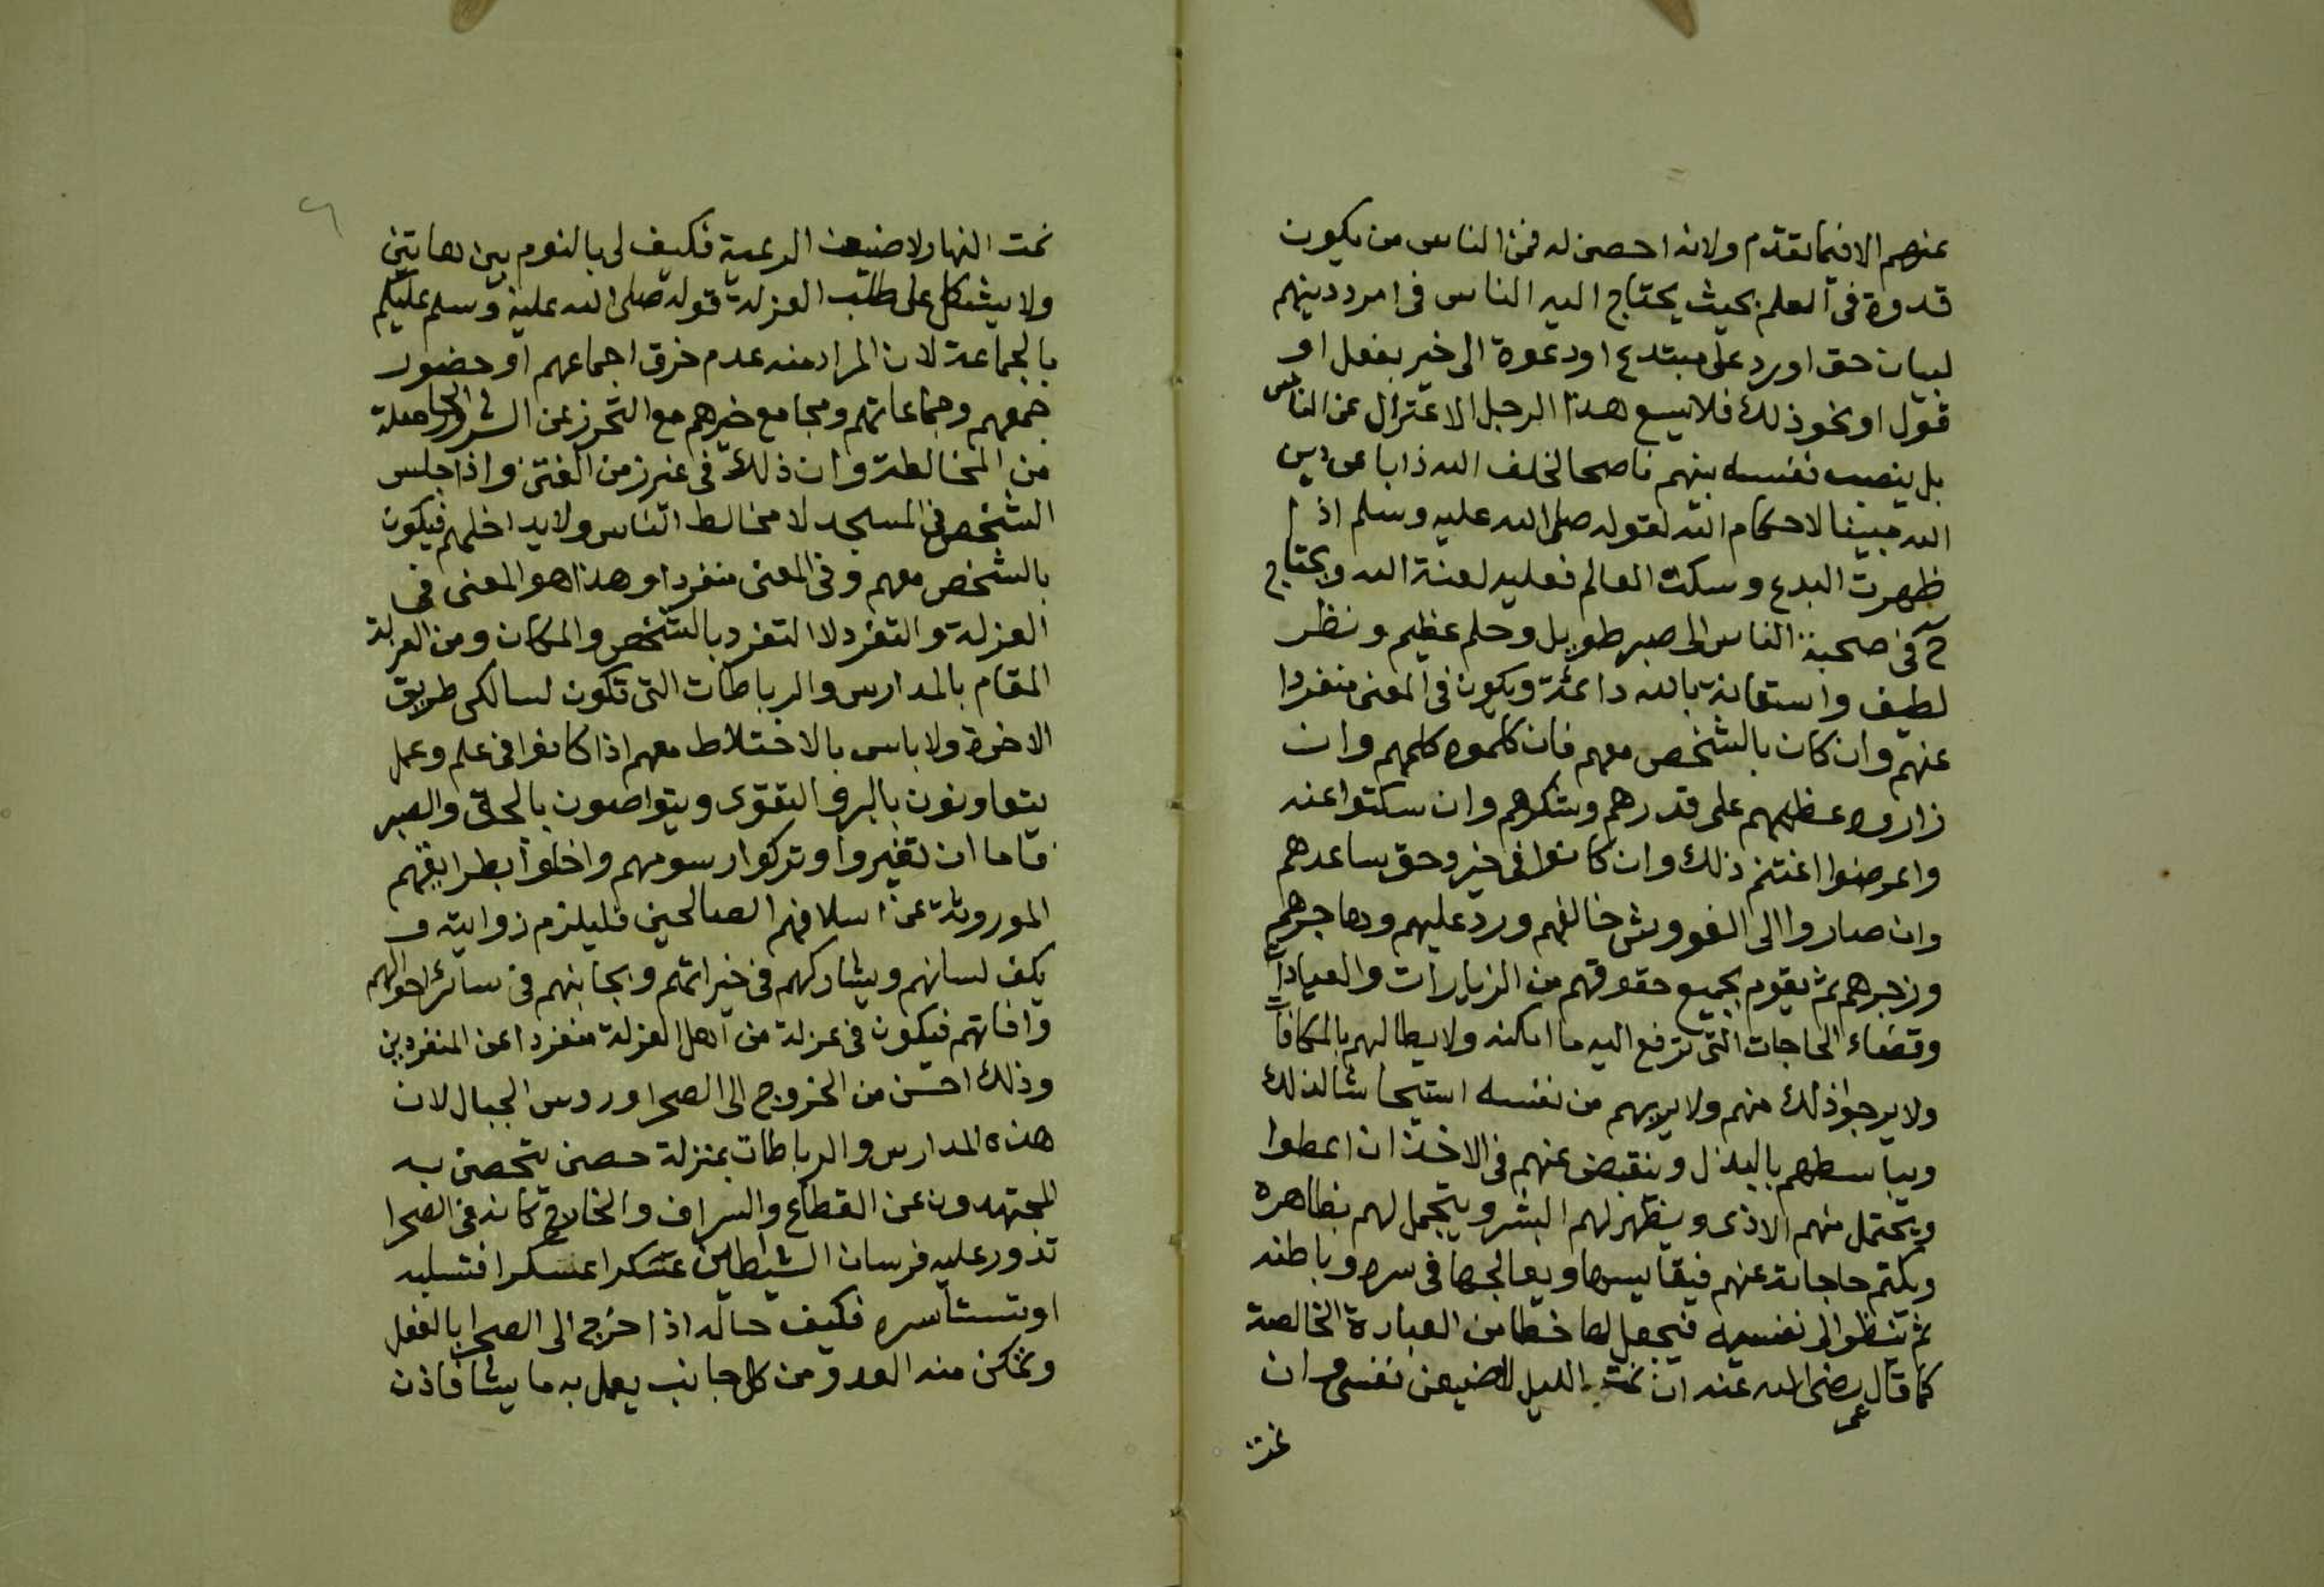 عنهم الا فيما تقدم ولانه احصن له فمن الناس من يكون
قدوة فى العلم بحيث يحتاج اليه الناس فى امر دينهم
لبيان حق او رد على مبتدع او دعوة الى خير بفعل او
قول او نحو ذلك فلا يسع هذا الرجل الاعتزال عن الناس
بل ينصب نفسه بينهم ناصحا لخلف الله ذابا عن دين
الله مبينا لاحكام الله لقوله صلى الله عليه وسلم اذا
ظهرت البدع وسكت العالم فعليه لعنة الله ويحتاج
فى صحبة الناس الى صبر طويل وحلم عظيم ونظر
لطيف واستعانة بالله دائمة ويكون فى المعنى منفردا
عنهم وان كان بالشخص معهم فان كلموه كلمهم وان
زاروه عظمهم على قدرهم وشكرهم وان سكتوا عنه
واعرضوا اغتنم ذلك وان كانوا فى خير وحق ساعدهم
وان صاروا الى الغو وشر خالفهم ورد عليهم وهاجرهم
وزجرهم ثم يقوم بجميع حقوقهم من الزيارات والعيادات
وقضاء الحاجات التى ترفع اليه ما امكنه ولا يطالبهم بالمكافات
ولا يرجوا ذلك منهم ولا يريهم من نفسه استيحاشا لذلك
ويباسطهم بالبذل وينقبض عنهم فى الاخذ ان اعطوا
ويحتمل منهم الاذى ويظهر لهم البشر ويتجمل لهم بظاهره
ويكتم حاجاته عنهم فيقاسيها ويعالجها فى سره وباطنه
ثم تنظوا لى نفسه فيجعل لها خطا من العبادة الخالصة
كما قال عمر رضى الله عنه ان نمت الليل لاضيعن نفسى وان
نمت
نمت النهار لاضيعن الرعية فكيف لى بالنوم بين هاتين
ولا يشكل على طلب العزلة قوله صلى الله عليه وسلم عليكم
بالجماعة لان المراد منه عدم خرق اجماعهم او حضور
جمعهم وجماعاتهم ومجامع خيرهم مع التحرز عن الشرور الحاصلة
من المخالطة وان ذلك فى غير زمن الفتن واذا جلس
الشخص فى المسجد لا مخالط الناس ولا يداخلهم فيكون
بالشخص معهم وفى المعنى منفردا وهذا هو المعنى فى
العزلة والتفرد لا التفرد بالشخص والمكان ومن العزلة
المقام بالمدارس والرباطات التى تكون لسالكى طريق
الاخرة ولا باس بالاختلاط معهم اذا كانوا فى علم وعمل
يتعاونون بالبر والتقوى ويتواصون بالحق والصبر
فاما ان تغيروا وتركوا رسومهم واخلوا بطرايقهم
الموروثة عن اسلافهم الصالحين فليلزم زوايته و
يكف لسانهم ويشاركهم فى خيراتهم ويجانبهم فى سائر احوالهم
وافاتهم فيكون فى عزلة من اهل العزلة منفردا عن المنفردين
وذلك احسن من الخروج الى الصحرا وروس الجبال لان
هذه المدارس والرباطات بمنزلة حصن يتحصن به
المجتهدون عن القطاع والسراف والخارج كانه فى الصحرا
تدور عليه فرسان الشيطاين عسكرا عسكرا فتسلبه
او تستأسره فكيف حاله اذا خرج الى الصحرا بالفعل
وتمكن منه العدو من كل جانب يعمل به ما يشا فاذن